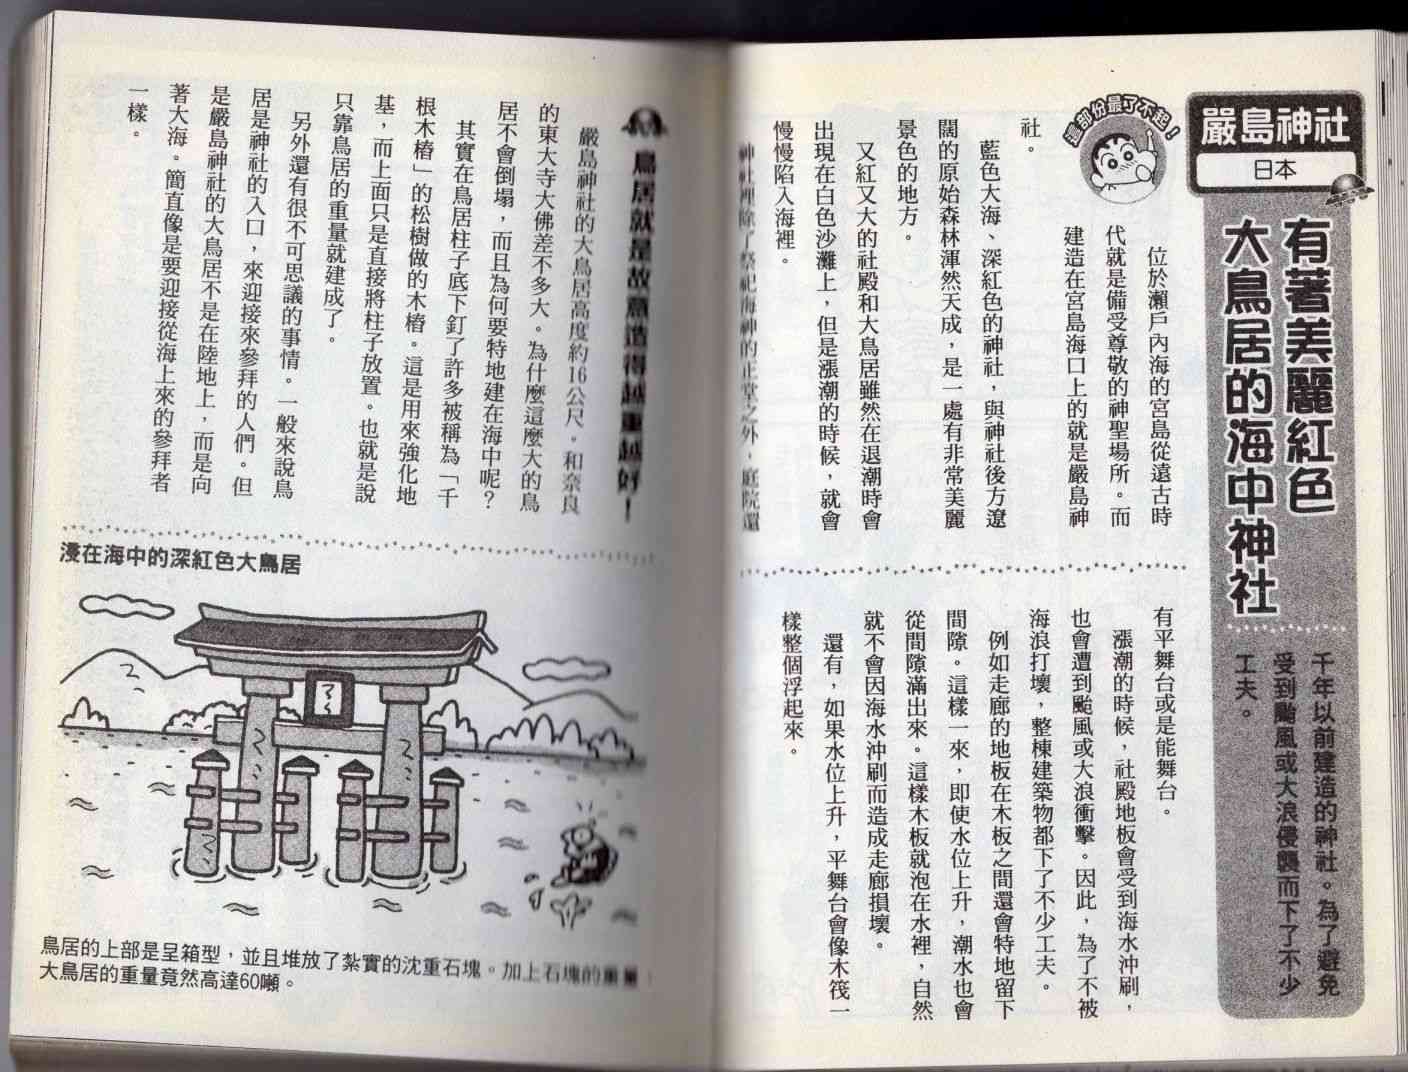 嚴島神社
日本
有著美麗紅色
大鳥居的海中神社
千年以前建造的神社。為了避免
受到颱風或大浪侵襲而下了不少
工夫。
這部份最了不起！
位於瀨戶內海的宮島從遠古時
代就是備受尊敬的神聖場所。而
建造在宮島海口上的就是嚴島神
社。
藍色大海、深紅色的神社，與神社後方遼
闊的原始森林渾然天成，是一處有非常美麗
景色的地方。
又紅又大的社殿和大鳥居雖然在退潮時會
出現在白色沙灘上，但是漲潮的時候，就會
慢慢陷入海裡。
神社裡除了祭祀海神的正堂之外，庭院還
有平舞台或是能舞台。
漲潮的時候，社殿地板會受到海水沖刷，
也會遭到颱風或大浪衝擊。因此，為了不被
海浪打壞，整棟建築物都下了不少工夫。
例如走廊的地板在木板之間還會特地留下
間隙。這樣一來，即使水位上升，潮水也會
從間隙滿出來。這樣木板就泡在水裡，自然
就不會因海水沖刷而造成走廊損壞。
還有，如果水位上升，平舞台會像木筏一
樣整個浮起來。
鳥居就是故意造得越重越好！
嚴島神社的大鳥居高度約16公尺。和奈良
的東大寺大佛差不多大。為什麼這麼大的鳥
居不會倒塌，而且為何要特地建在海中呢？
其實在鳥居柱子底下釘了許多被稱為「千
根木樁」的松樹做的木樁。這是用來強化地
基，而上面只是直接將柱子放置。也就是說
只靠鳥居的重量就建成了。
另外還有很不可思議的事情。一般來說鳥
居是神社的入口，來迎接來參拜的人們。但
是嚴島神社的大鳥居不是在陸地上，而是向
著大海。簡直像是要迎接從海上來的參拜者
一樣。
浸在海中的深紅色大鳥居
鳥居的上部是呈箱型，並且堆放了紮實的沈重石塊。加上石塊的重量
大鳥居的重量竟然高達60噸。